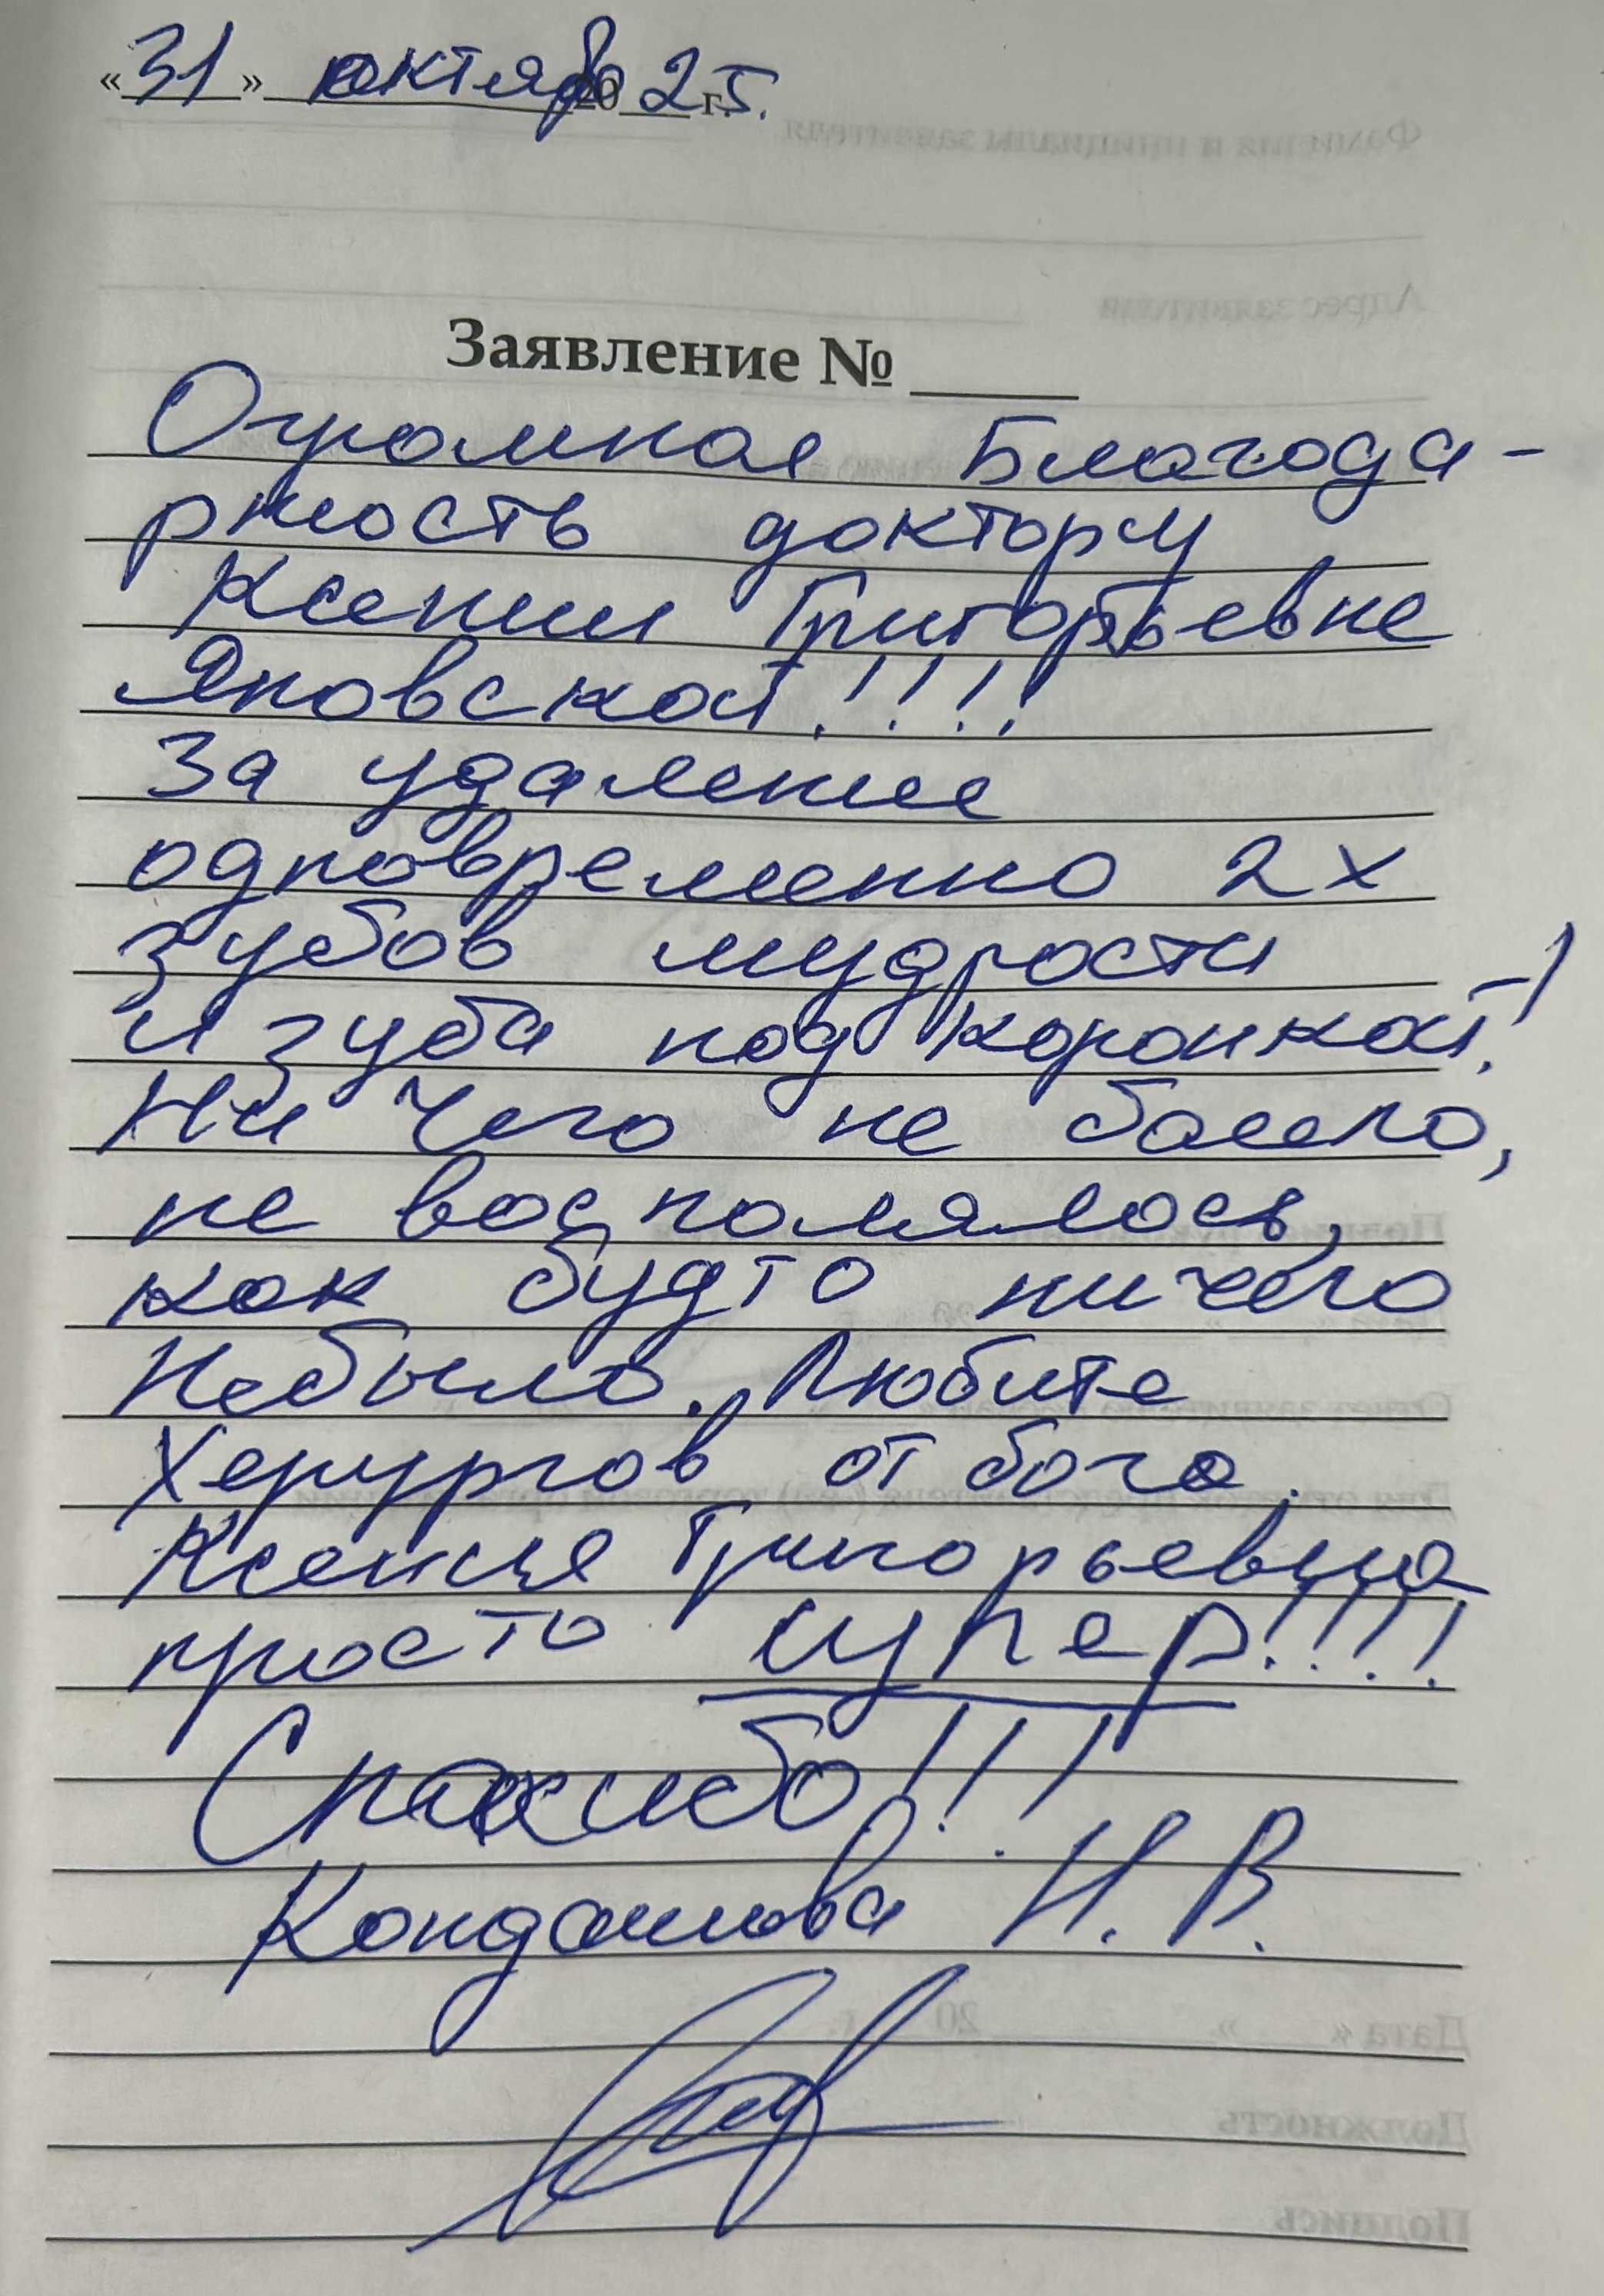 «31» октября 2025 г.
Заявление № ____
Огромная Благода-
рность доктору
Ксении Григорьевне
Яновской!!!!
За удаление
одновременно 2х
зубов мудрости
и зуба под коронкой!
Ни чего не болело,
не воспомялось,
как будто ничего
Небыло. Любите
Херургов от бога.
Ксения Григорьевна
просто супер!!!!
Спасибо!!!
Кондашова Н. В.